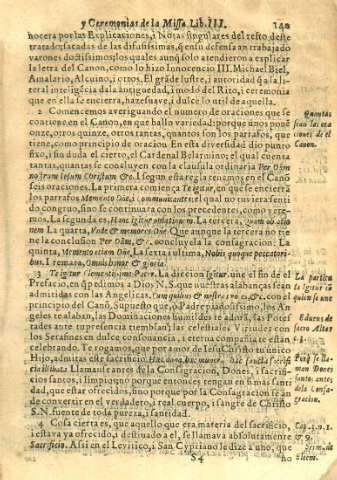 y Ceremonias de la Missa Lib. III. 140
nocera por las Explicaciones, i Notas singulares del resto deste
tratado, sacadas de las difusissimas, q̃ en su defensa an trabajado
varones doctissimos, los quales aunq̃ solo atendieron a explicar
la letra del Canon, como lo hizo Innocencio III. Michael Biel,
Amalario, Alcuino, i otros. El grãde lustre, i autoridad q̃ a la li-
teral inteligẽcia da la antiguedad, i modo del Rito, i ceremonia
que en ella se encierra, haze suave, i dulce lo util de aquella.
2 Comencemos averiguando el numero de oraciones que se
contiene en el Canon, en que hallo variedad; porque unos ponẽ
onze, otros quinze, otros tantas, quantos son los parrafos, que
tiene, como principio de oracion. En esta diversidad dio punto
fixo, i sin duda el cierto, el Cardenal Belarmino; el qual cuenta
tantas, quantas se concluyen con la clausula ordinaria Per Dñm
nostrum Iesum Christum &c. I segun esta regla tenemos en el Canõ
seis oraciones. La primera comiença Te igitur, en q̃ se encierrã
los parrafos Memento Dñe, i communicantes: el qual no tuviera senti
do congruo, sino se continuara con los precedentes, como ire-
mos. La segunda es, Hanc igitur oblationem. La tercera, Quam oblatio
nem La quarta, Unde & memores Dñe. Que aunque la tercera no tie
ne la conclusion Per Dñm, &c. concluyela la consagracion: La
quinta, Memento etiam Dñe, La sexta i ultima, Nobis quoque peccatori
bus. I remata, Omnis honor & gloria.
3 Te igitur Clementissime Pater. La diccion Igitur, une el fin de el
Prefacio, en q̃ pedimos a Dios N. S. que nuestras alabanças sean
admitidas con las Angelicas, Cum quibus & nostras voces, &c. con el
principio del Canõ. Supuesto que, o Padre piadosissimo, los An
geles te alaban, las Dominaciones humildes te adorã, las Potes
tades ante tu presencia tiemblan; las celestiales Virtudes con
los Serafines en dulce consonancia, i eterna compañia te estan
celebrando. Te rogamos, que por amor de Iesu Christo tu unico
Hijo, admitas este sacrificio. Hæc dona, hæc munera, hæc sancta sacrifi
cia illibata Llamase antes de la Consagracion, Dones, i sacrifi-
cios santos, i limpios; no porque entonces tengan en si mas santi
dad, que estar ofrecidos, sino porque por la Consagracion se an
de convertir en el verdadero, i real cuerpo, i sangre de Christo
S. N. fuente de toda pureza, i sanidad.
4 Cosa cierta es, que aquello que era materia del sacrificio,
i estava ya ofrecido, i destinado a el, se llamava absolutamente
Sacrificio. Assi en el Levitico, i San Cypriano le dize a uno, que
S 4 no
Quantas
sean las ora
ciones de el
Canon.
La particu
la Igitur cõ
quien se une
Porq̃ se lla
man Dones
santos antes
dela Consa-
gracion.